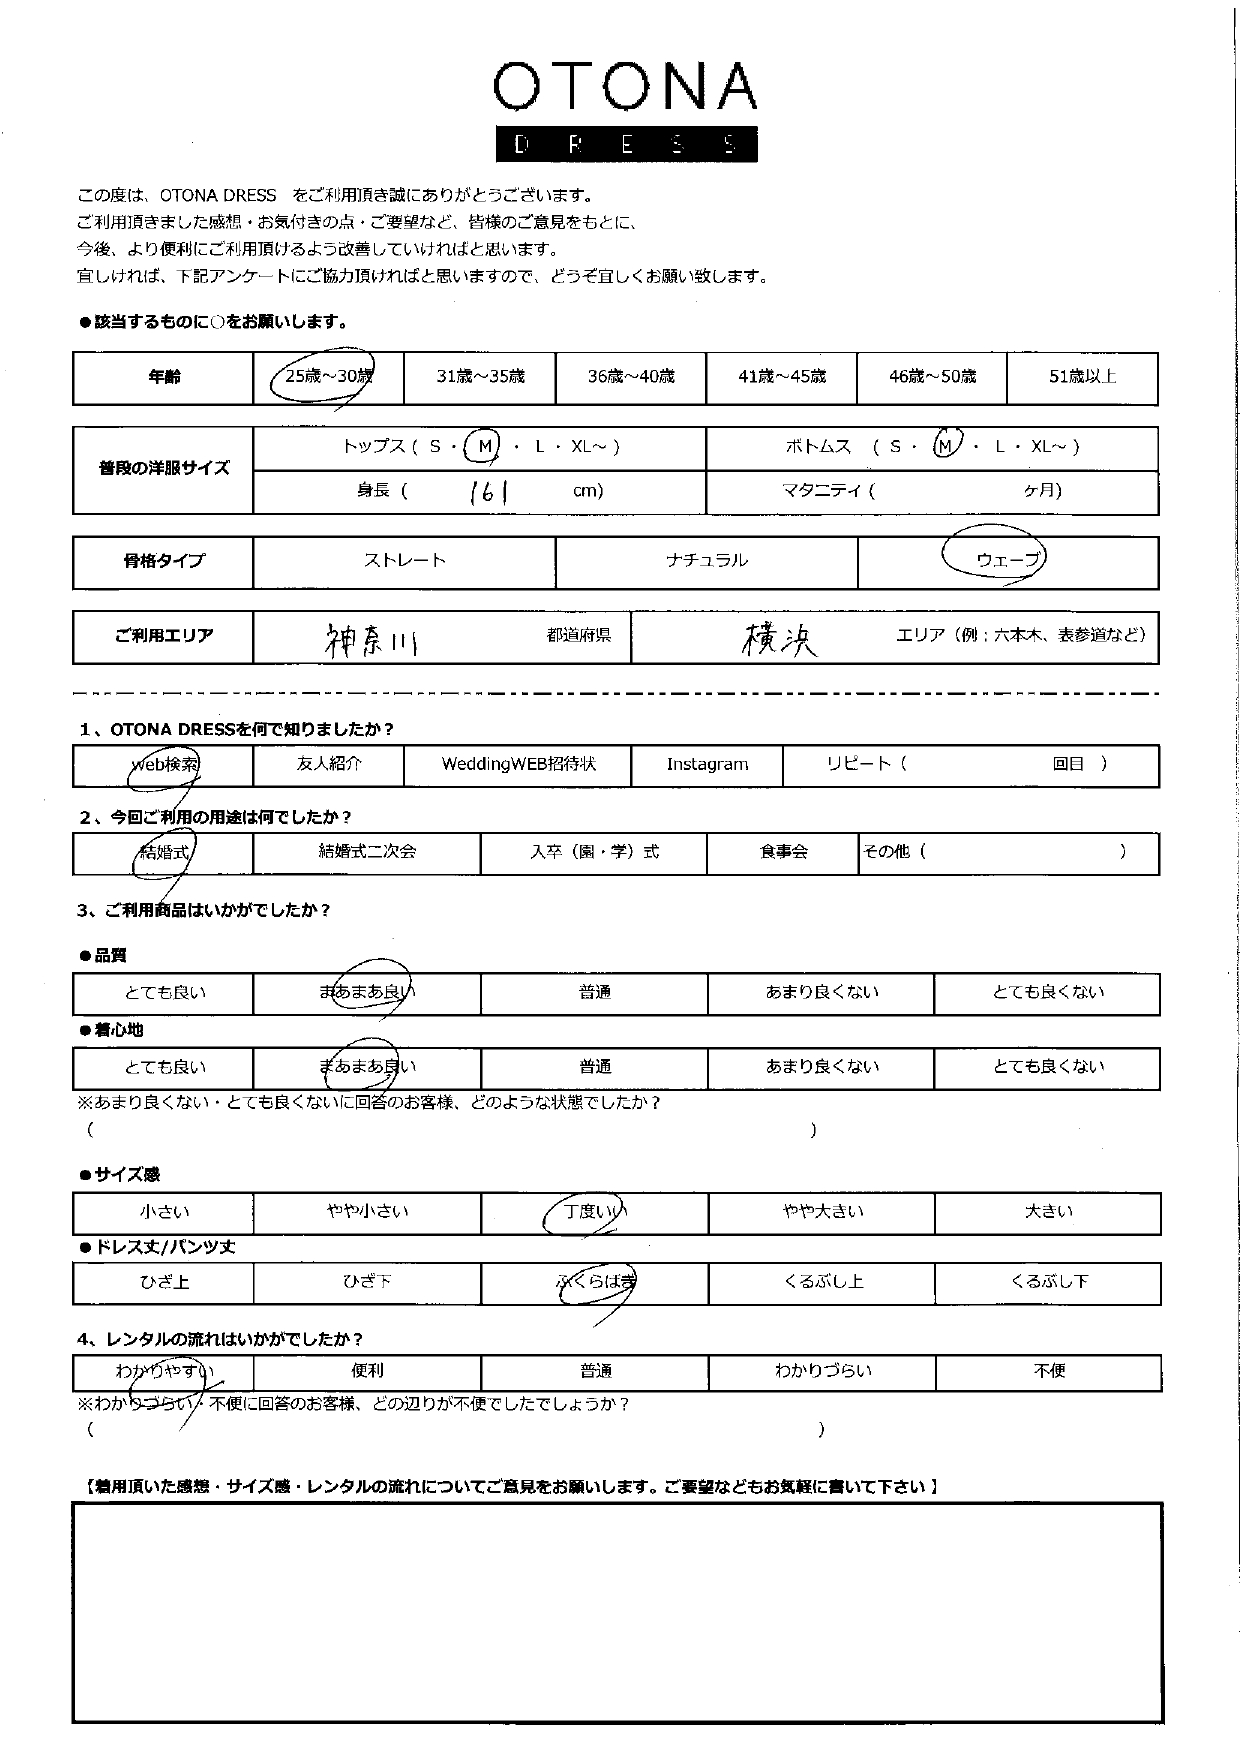 OTONA
DRESS
この度は、OTONA DRESS　をご利用頂き誠にありがとうございます。
ご利用頂きました感想・お気付きの点・ご要望など、皆様のご意見をもとに、
今後、より便利にご利用頂けるよう改善していければと思います。
宜しければ、下記アンケートにご協力頂ければと思いますので、どうぞ宜しくお願い致します。
●該当するものに○をお願いします。
年齢 25歳～30歳 31歳～35歳 36歳～40歳 41歳～45歳 46歳～50歳 51歳以上
普段の洋服サイズ
トップス ( S ・ M ・ L ・ XL～ ) ボトムス ( S ・ M ・ L ・ XL～ )
身長 ( 161 cm) マタニティ ( ヶ月)
骨格タイプ ストレート ナチュラル ウェーブ
ご利用エリア 神奈川 都道府県 横浜 エリア（例；六本木、表参道など）
1、OTONA DRESSを何で知りましたか？
web検索 友人紹介 WeddingWEB招待状 Instagram リピート（ 回目 ）
2、今回ご利用の用途は何でしたか？
結婚式 結婚式二次会 入卒（園・学）式 食事会 その他（ ）
3、ご利用商品はいかがでしたか？
●品質
とても良い まあまあ良い 普通 あまり良くない とても良くない
●着心地
とても良い まあまあ良い 普通 あまり良くない とても良くない
※あまり良くない・とても良くないに回答のお客様、どのような状態でしたか？
（ ）
●サイズ感
小さい やや小さい 丁度いい やや大きい 大きい
●ドレス丈/パンツ丈
ひざ上 ひざ下 ふくらはぎ くるぶし上 くるぶし下
4、レンタルの流れはいかがでしたか？
わかりやすい 便利 普通 わかりづらい 不便
※わかりづらい・不便に回答のお客様、どの辺りが不便でしたでしょうか？
（ ）
【着用頂いた感想・サイズ感・レンタルの流れについてご意見をお願いします。ご要望などもお気軽に書いて下さい】